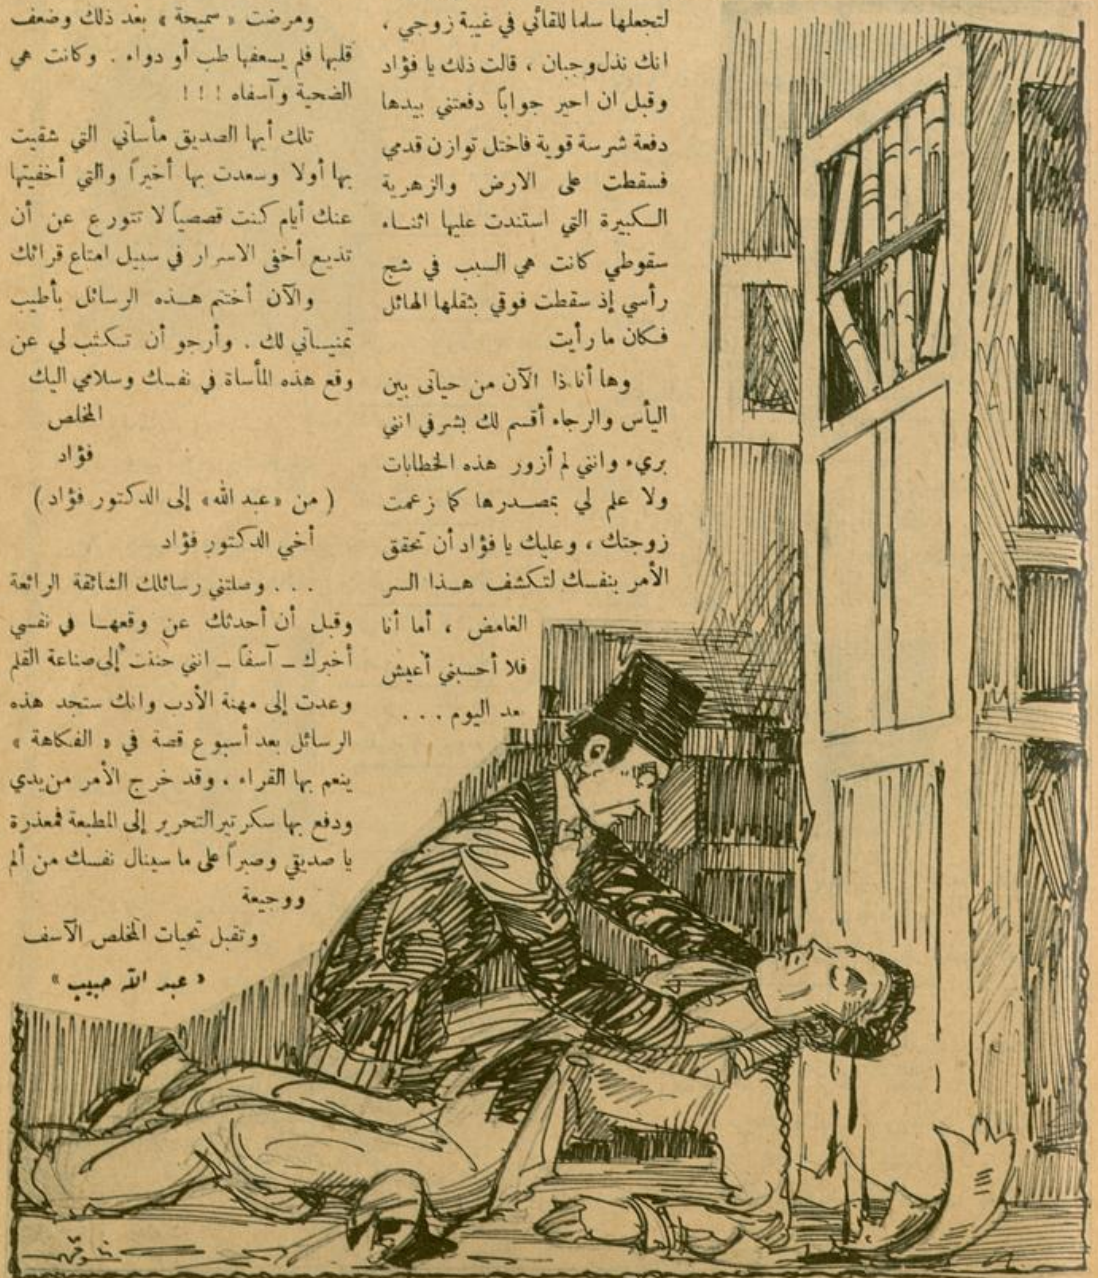 لتجعلها سلما للقائي في غيبة زوجي ،
انك نذل وجبان ، قالت ذلك يا فؤاد
وقبل ان احير جواباً دفعتني بيدها
دفعة شرسة قوية فاختل توازن قدمي
فسقطت على الارض والزهرية
الكبيرة التي استندت عليها اثناء
سقوطي كانت هي السبب في شج
رأسي إذ سقطت فوقي بثقلها الهائل
فكان ما رأيت
وها أنا ذا الآن من حياتى بين
اليأس والرجاء أقسم لك بشرفي انني
بريء وانني لم أزور هذه الخطابات
ولا علم لي بمصدرها كما زعمت
زوجتك ، وعليك يا فؤاد أن تحقق
الأمر بنفسك لتكشف هذا السر
الغامض ، أما أنا
فلا أحسبني أعيش
بعد اليوم . . .
ومرضت « سميحة » بعد ذلك وضعف
قلبها فلم يسعفها طب أو دواء . وكانت هي
الضحية وآسفاه ! ! !
تلك أيها الصديق مأساتي التي شقيت
بها أولا وسعدت بها أخيراً والتي أخفيتها
عنك أيام كنت قصصياً لا تتورع عن أن
تذيع أخفى الاسرار في سبيل امتاع قرائك
والآن أختم هذه الرسائل بأطيب
تمنياتي لك . وأرجو أن تكتب لي عن
وقع هذه المأساة في نفسك وسلامي اليك
المخلص
فؤاد
( من «عبد الله» إلى الدكتور فؤاد )
أخي الدكتور فؤاد
. . . وصلتني رسائلك الشائقة الرائعة
وقبل أن أحدثك عن وقعها في نفسي
أخبرك ــ آسفاً ــ انني حننت إلى صناعة القلم
وعدت إلى مهنة الأدب وانك ستجد هذه
الرسائل بعد أسبوع قصة في « الفكاهة »
ينعم بها القراء ، وقد خرج الأمر من يدي
ودفع بها سكرتير التحرير إلى المطبعة فمعذرة
يا صديقي وصبراً على ما سينال نفسك من ألم
ووجيعة
وتقبل تحيات المخلص الآسف
« عبد الله حبيب »